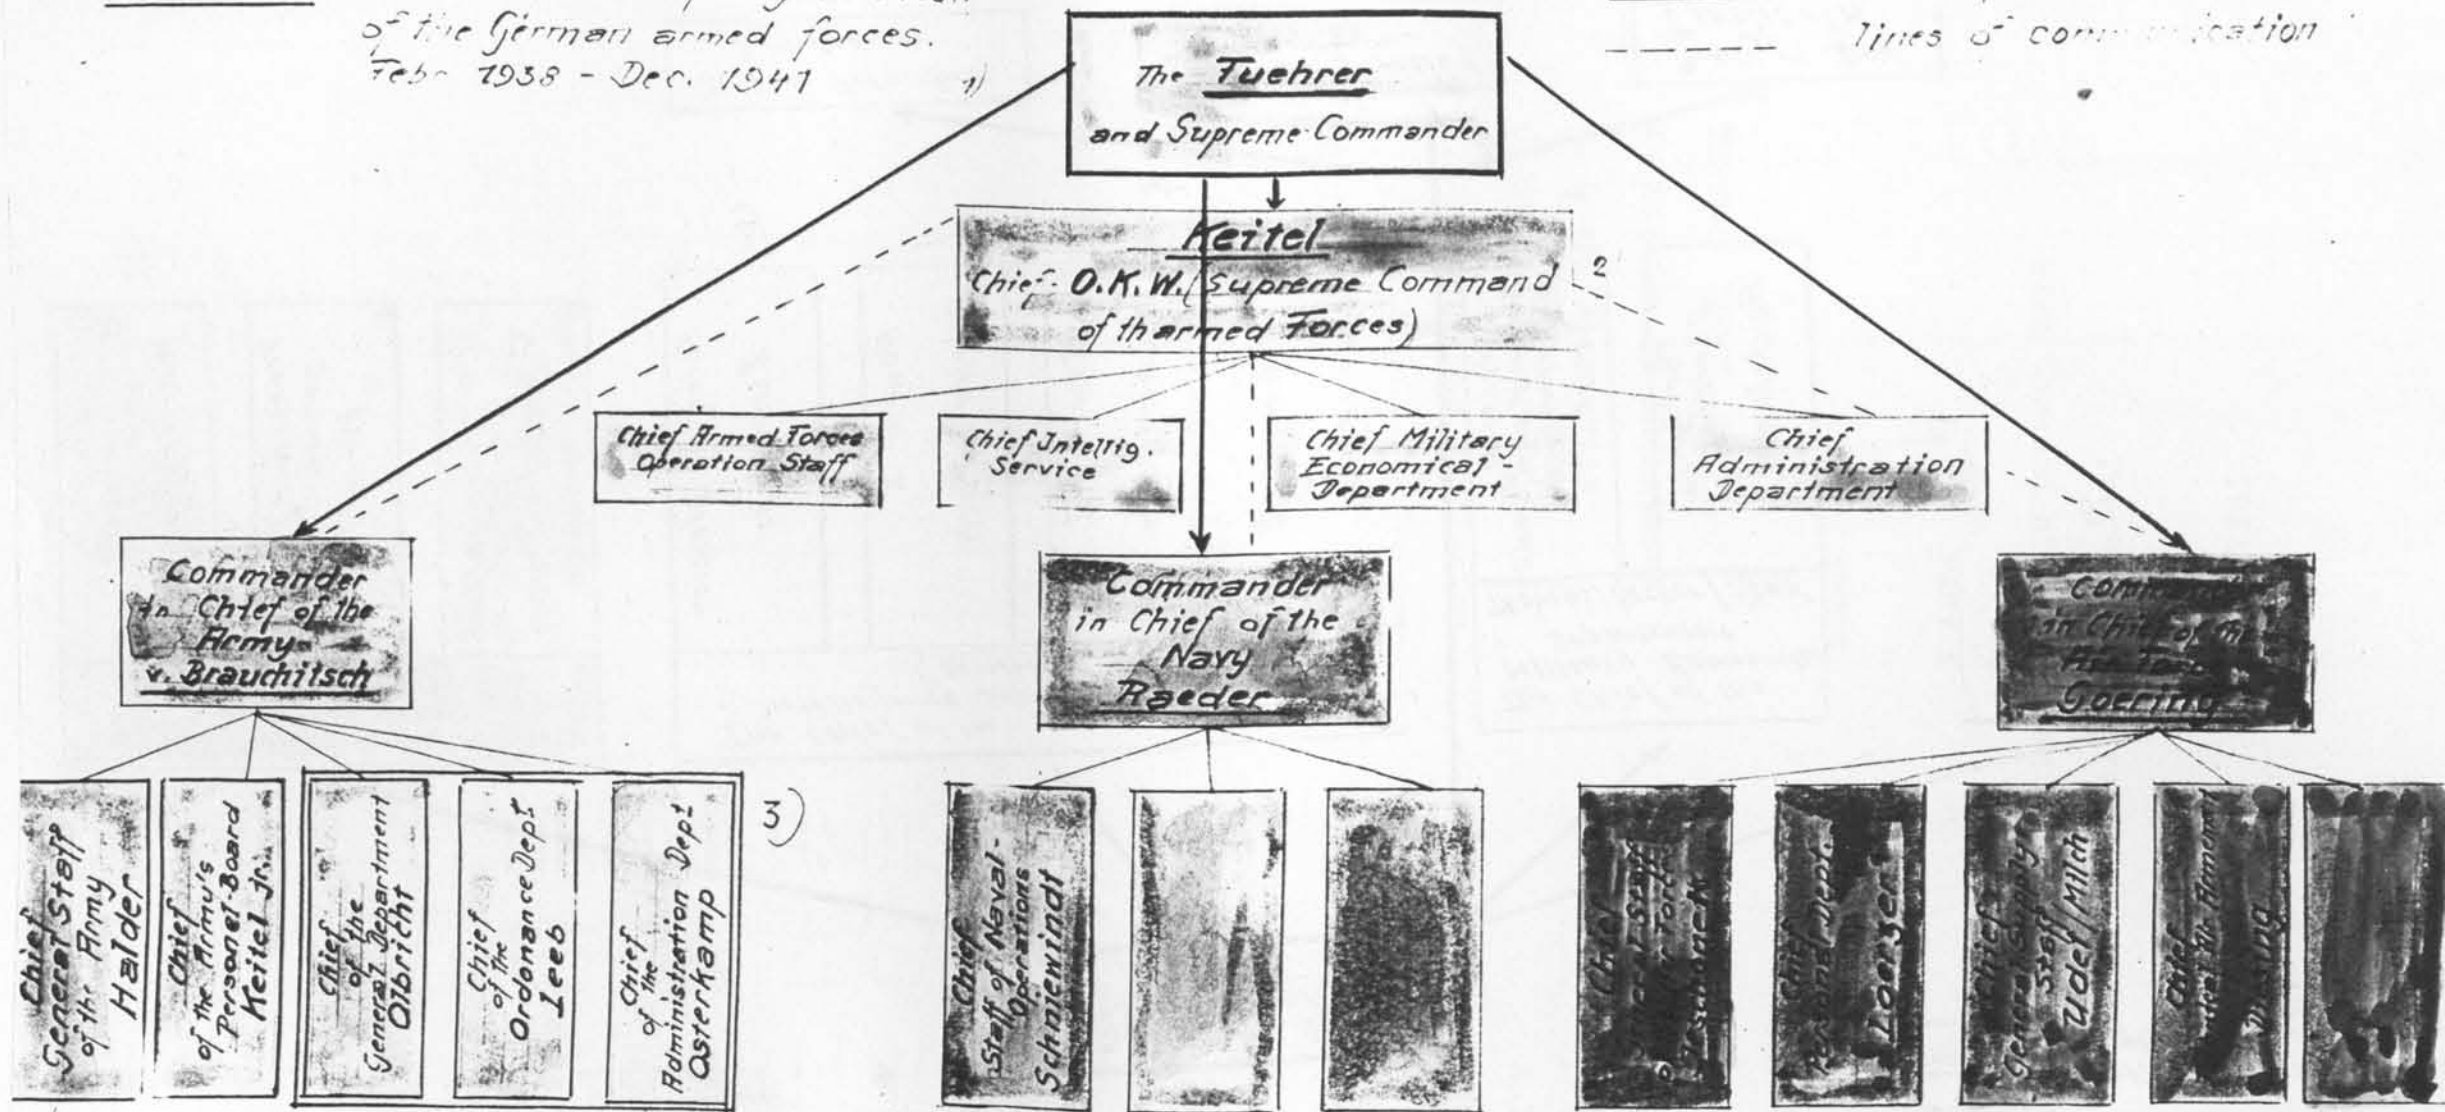 of the German armed forces.
Febr 1938 - Dec. 1941
1)
lines of communication
The Fuehrer
and Supreme Commander
Keitel
Chief O.K.W. (Supreme Command
of th armed Forces)
2
Chief Armed Forces
Operation Staff
Chief Intellig.
Service
Chief Military
Economical -
Department
Chief
Administration
Department
Commander
in Chief of the
Army
v. Brauchitsch
Commander
in Chief of the
Navy
Raeder
Commander
in Chief of the
Air Force
Goering
Chief
General Staff
of the Army
Halder
Chief
of the Army's
Personel-Board
Keitel Jr.
Chief
of the
General Department
Olbricht
Chief
of the
Ordonance Dept
Leeb
Chief
of the
Administration Dept
Osterkamp
3)
Chief
Staff of Naval-
Operations
Schniewindt
Chief
General Staff
Air Force
Jeschonek
Chief
Personal Dept.
Loerzer
Chief
General Supply
Staff
Udet/Milch
Chief